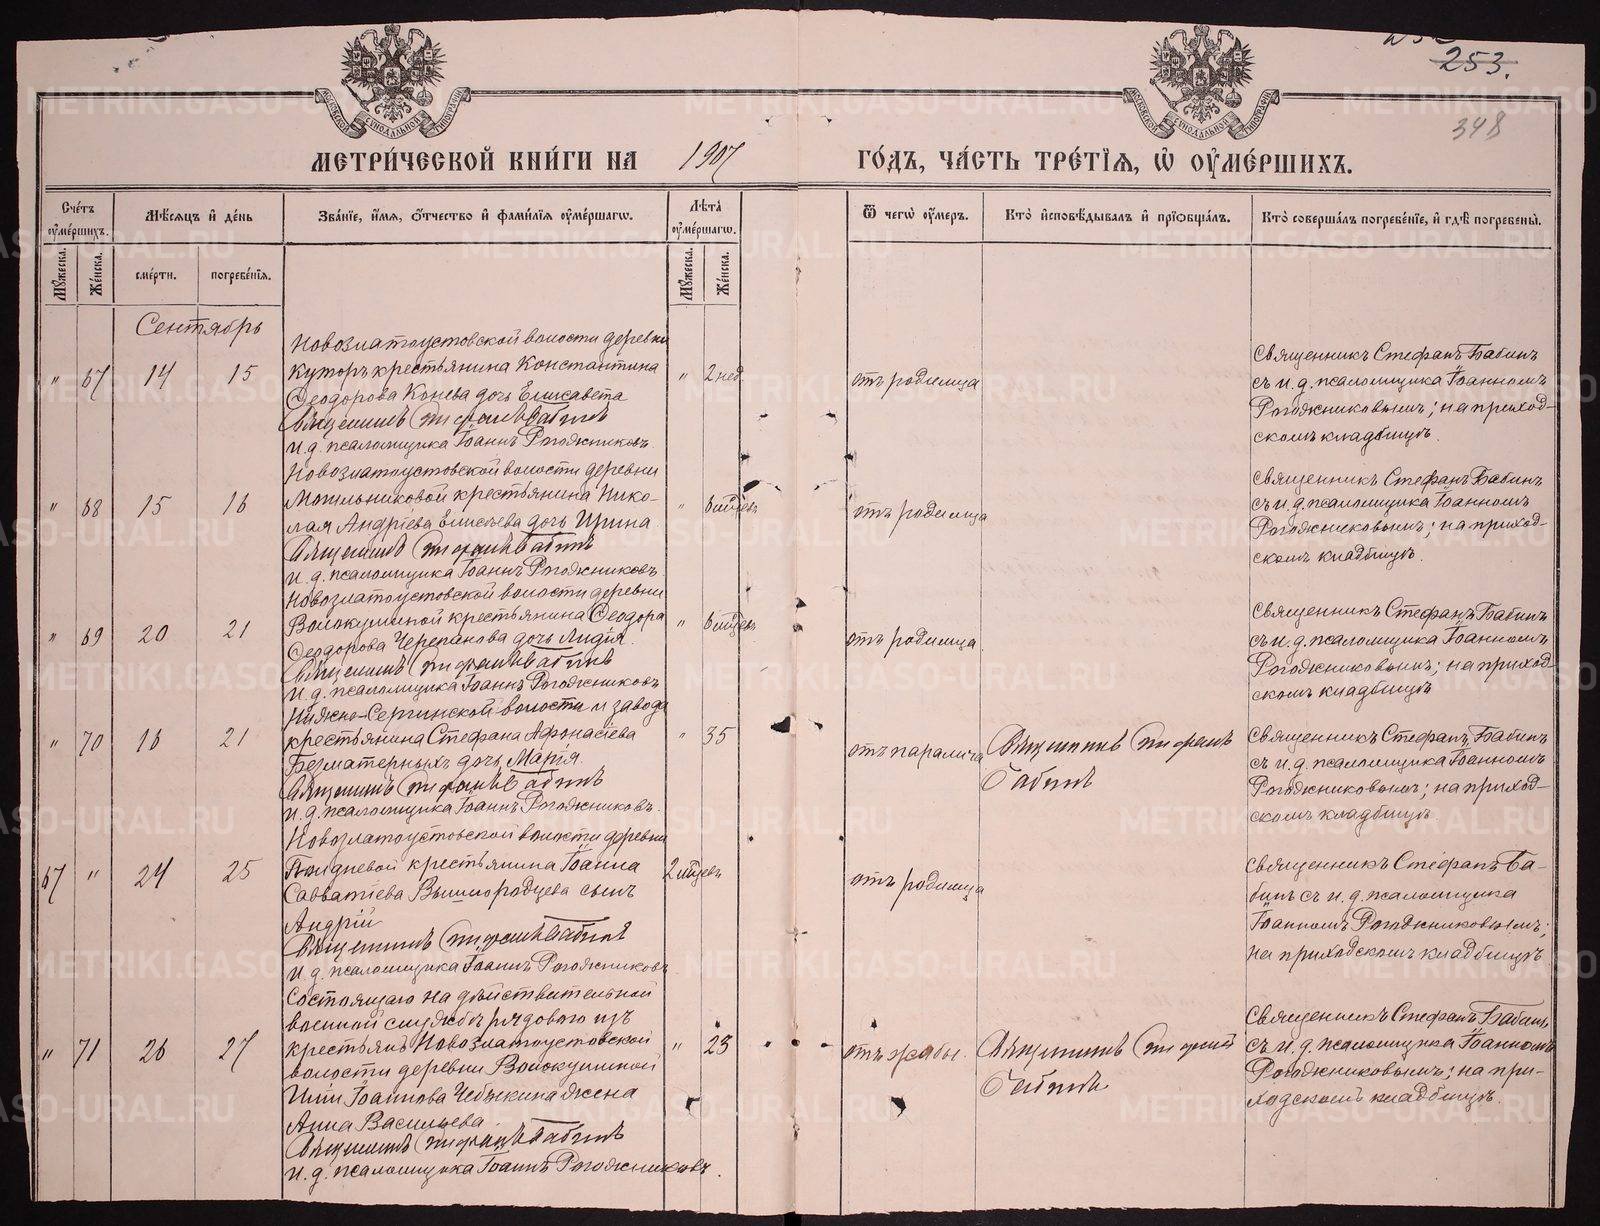 253.
348
МЕТРИ́ЧЕСКОЙ КНИ́ГИ НА 1907 ГО́ДЪ, ЧА́СТЬ ТРЕ́ТІЯ, Ѡ҆ ОУ҆МЕ́РШИХЪ.
Сче́тъ оу҆ме́ршихъ.
Мꙋ́жеска.
Же́нска.
Мѣ́сяцъ и҆ де́нь
сме́рти.
погребе́нїѧ.
Зва́нїе, и҆́мѧ, ѻ҆́тчество и҆ фами́лїѧ оу҆ме́ршагѡ.
Лѣ́та̀ оу҆ме́ршагѡ.
Мꙋ́жеска.
Же́нска.
Ѿ чегѡ̀ оу҆́меръ.
Кто̀ и҆сповѣ́дывалъ и҆ прїѡбща́лъ.
Кто̀ соверша́лъ погребе́нїе, и҆ гдѣ̀ погребены̀.
Сентябрь
" 67 14 15
Новозлатоустовской волости деревни
Куторъ крестьянина Константина
Ѳеодорова Конева дочь Елисавета
Священникъ Стефанъ Бабинъ
и. д. псаломщика Іоаннъ Рогожниковъ
" 2 нед.
отъ родимца
Священникъ Стефанъ Бабин
съ и. д. псаломщика Іоанномъ
Рогожниковымъ; на приход-
скомъ кладбищѣ.
" 68 15 16
Новозлатоустовской волости деревни
Могильниковой крестьянина Нико-
лая Андріева Елисѣева дочь Ирина
Священникъ Стефанъ Бабинъ
и. д. псаломщика Іоаннъ Рогожниковъ
" 6 мѣсцевъ
отъ родимца
Священникъ Стефанъ Бабинъ
съ и. д. псаломщика Іоанномъ
Рогожниковымъ; на приход-
скомъ кладбищѣ.
" 69 20 21
Новозлатоустовской волости деревни
Волокушиной крестьянина Ѳеодора
Ѳеодорова Черепанова дочь Лидія.
Священникъ Стефанъ Бабинъ
и. д. псаломщика Іоаннъ Рогожниковъ
" 6 мѣсцевъ
отъ родимца
Священникъ Стефанъ Бабинъ
съ и. д. псаломщика Іоанномъ
Рогожниковымъ; на приход
скомъ кладбищѣ
" 70 16 21
Нижно-Сергинской волости и завода
крестьянина Стефана Афонасіева
Безматерныхъ дочь Марія.
Священникъ Стефанъ Бабинъ
и. д. псаломщика Іоаннъ Рогожниковъ.
" 35
отъ паралича
Священникъ Стефанъ
Бабинъ
Священникъ Стефанъ Бабинъ
съ и. д. псаломщика Іоанномъ
Рогожниковымъ; на приход-
скомъ кладбищѣ.
67 " 24 25
Новозлатоустовской волости деревни
крестьянина Іоанна
Савватіева Вышгородцева сынъ
Андрій
Священникъ Стефанъ Бабинъ
и. д. псаломщика Іоаннъ Рогожниковъ
2 мѣсцевъ
отъ родимца
Священникъ Стефанъ Ба-
бинъ съ и. д. псаломщика
Іоанномъ Рогожниковымъ;
на приходскомъ кладбищѣ
" 71 26 27
Состоящаго на дѣйствительной
военной службѣ рядового изъ
крестьянъ Новозлатоустовской
волости деревни Волокушиной
Іоаннова Чебыкина жена
Анна Васильева.
Священникъ Стефанъ Бабинъ
и. д. псаломщика Іоаннъ Рогожниковъ.
" 23
отъ жабы.
Священникъ Стефанъ
Бабинъ
Священникъ Стефанъ Бабинъ
съ и. д. псаломщика Іоанномъ
Рогожниковымъ; на при-
ходскомъ кладбищѣ.
METRIKI.GASO-URAL.RU